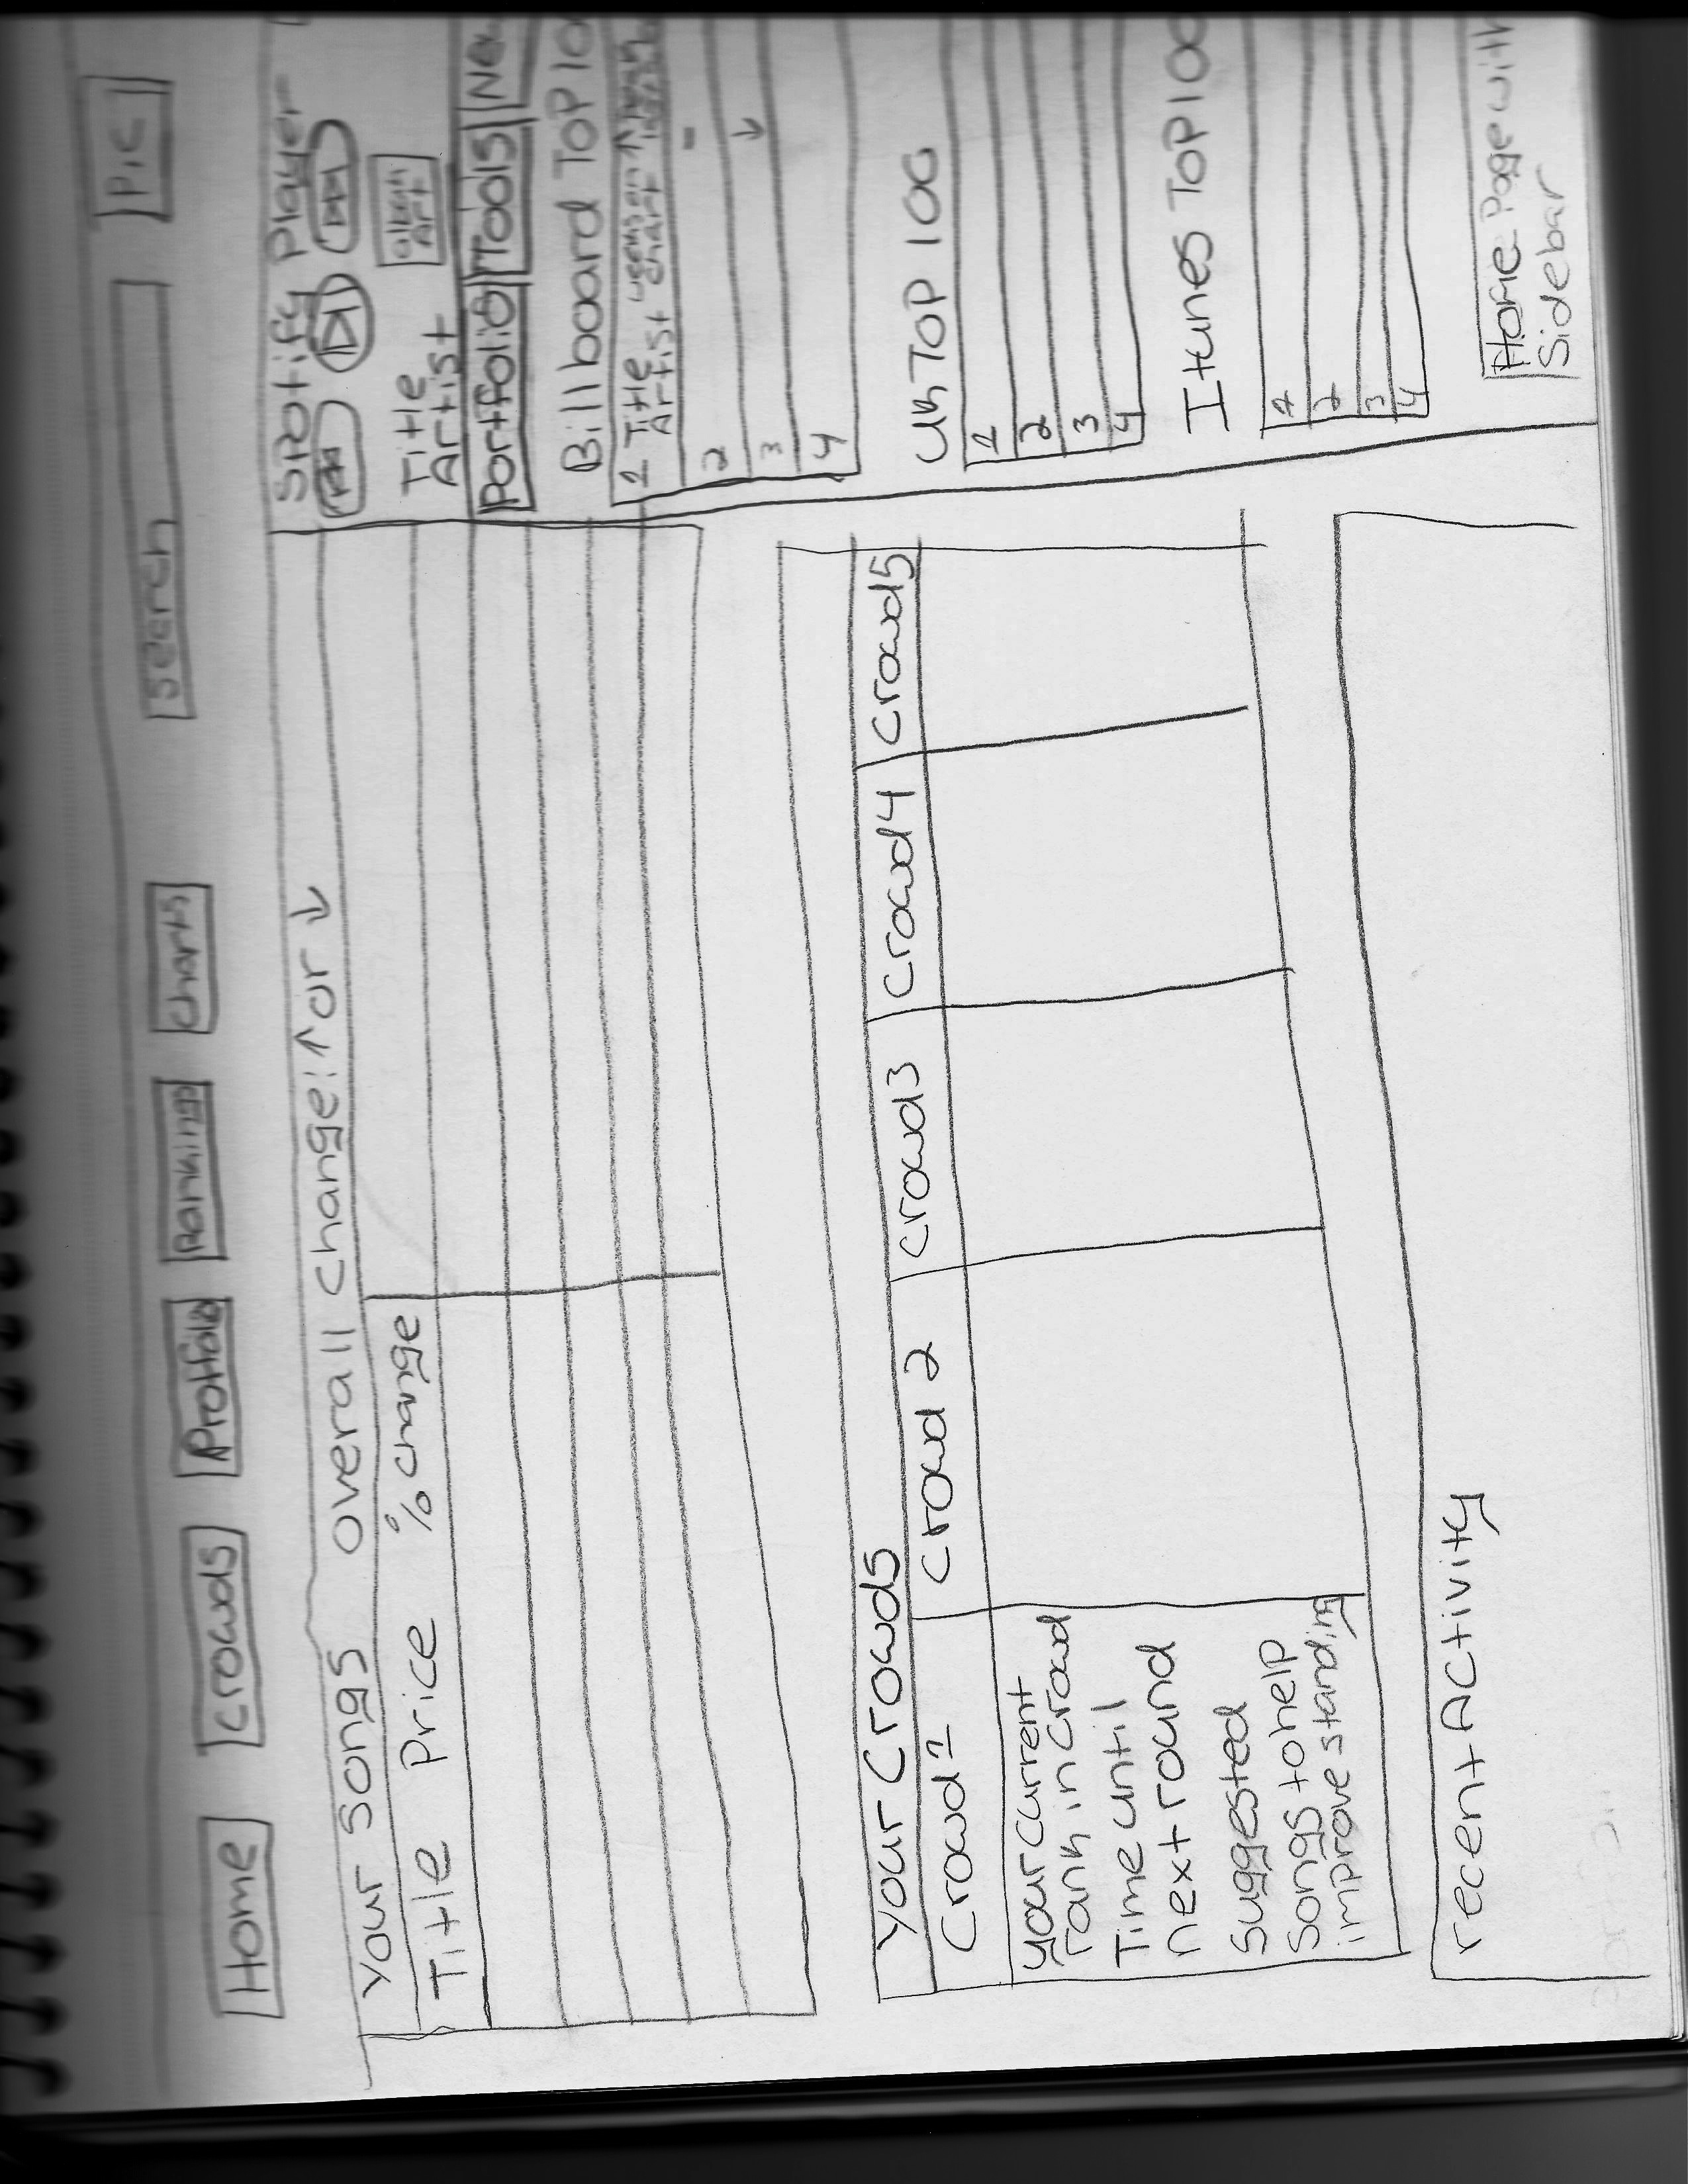 Home Crowds Protfolio Ranking Charts Search Pic
Your Songs Overall Change: ↑ or ↓
Title Price % change
Your Crowds
Crowd 1 Crowd 2 Crowd3 Crowd4 Crowd5
your current
rank in crowd
Time until
next round
Suggested
Songs to help
improve standing
recent Activity
Spotify Player
Title
Artist
album
Art
Portfolio Tools
Billboard Top
1 Title
Artist chart
2 -
3 ↓
4
UK TOP 100
1
2
3
4
Itunes TOP 100
1
2
3
4
Home Page with
Sidebar